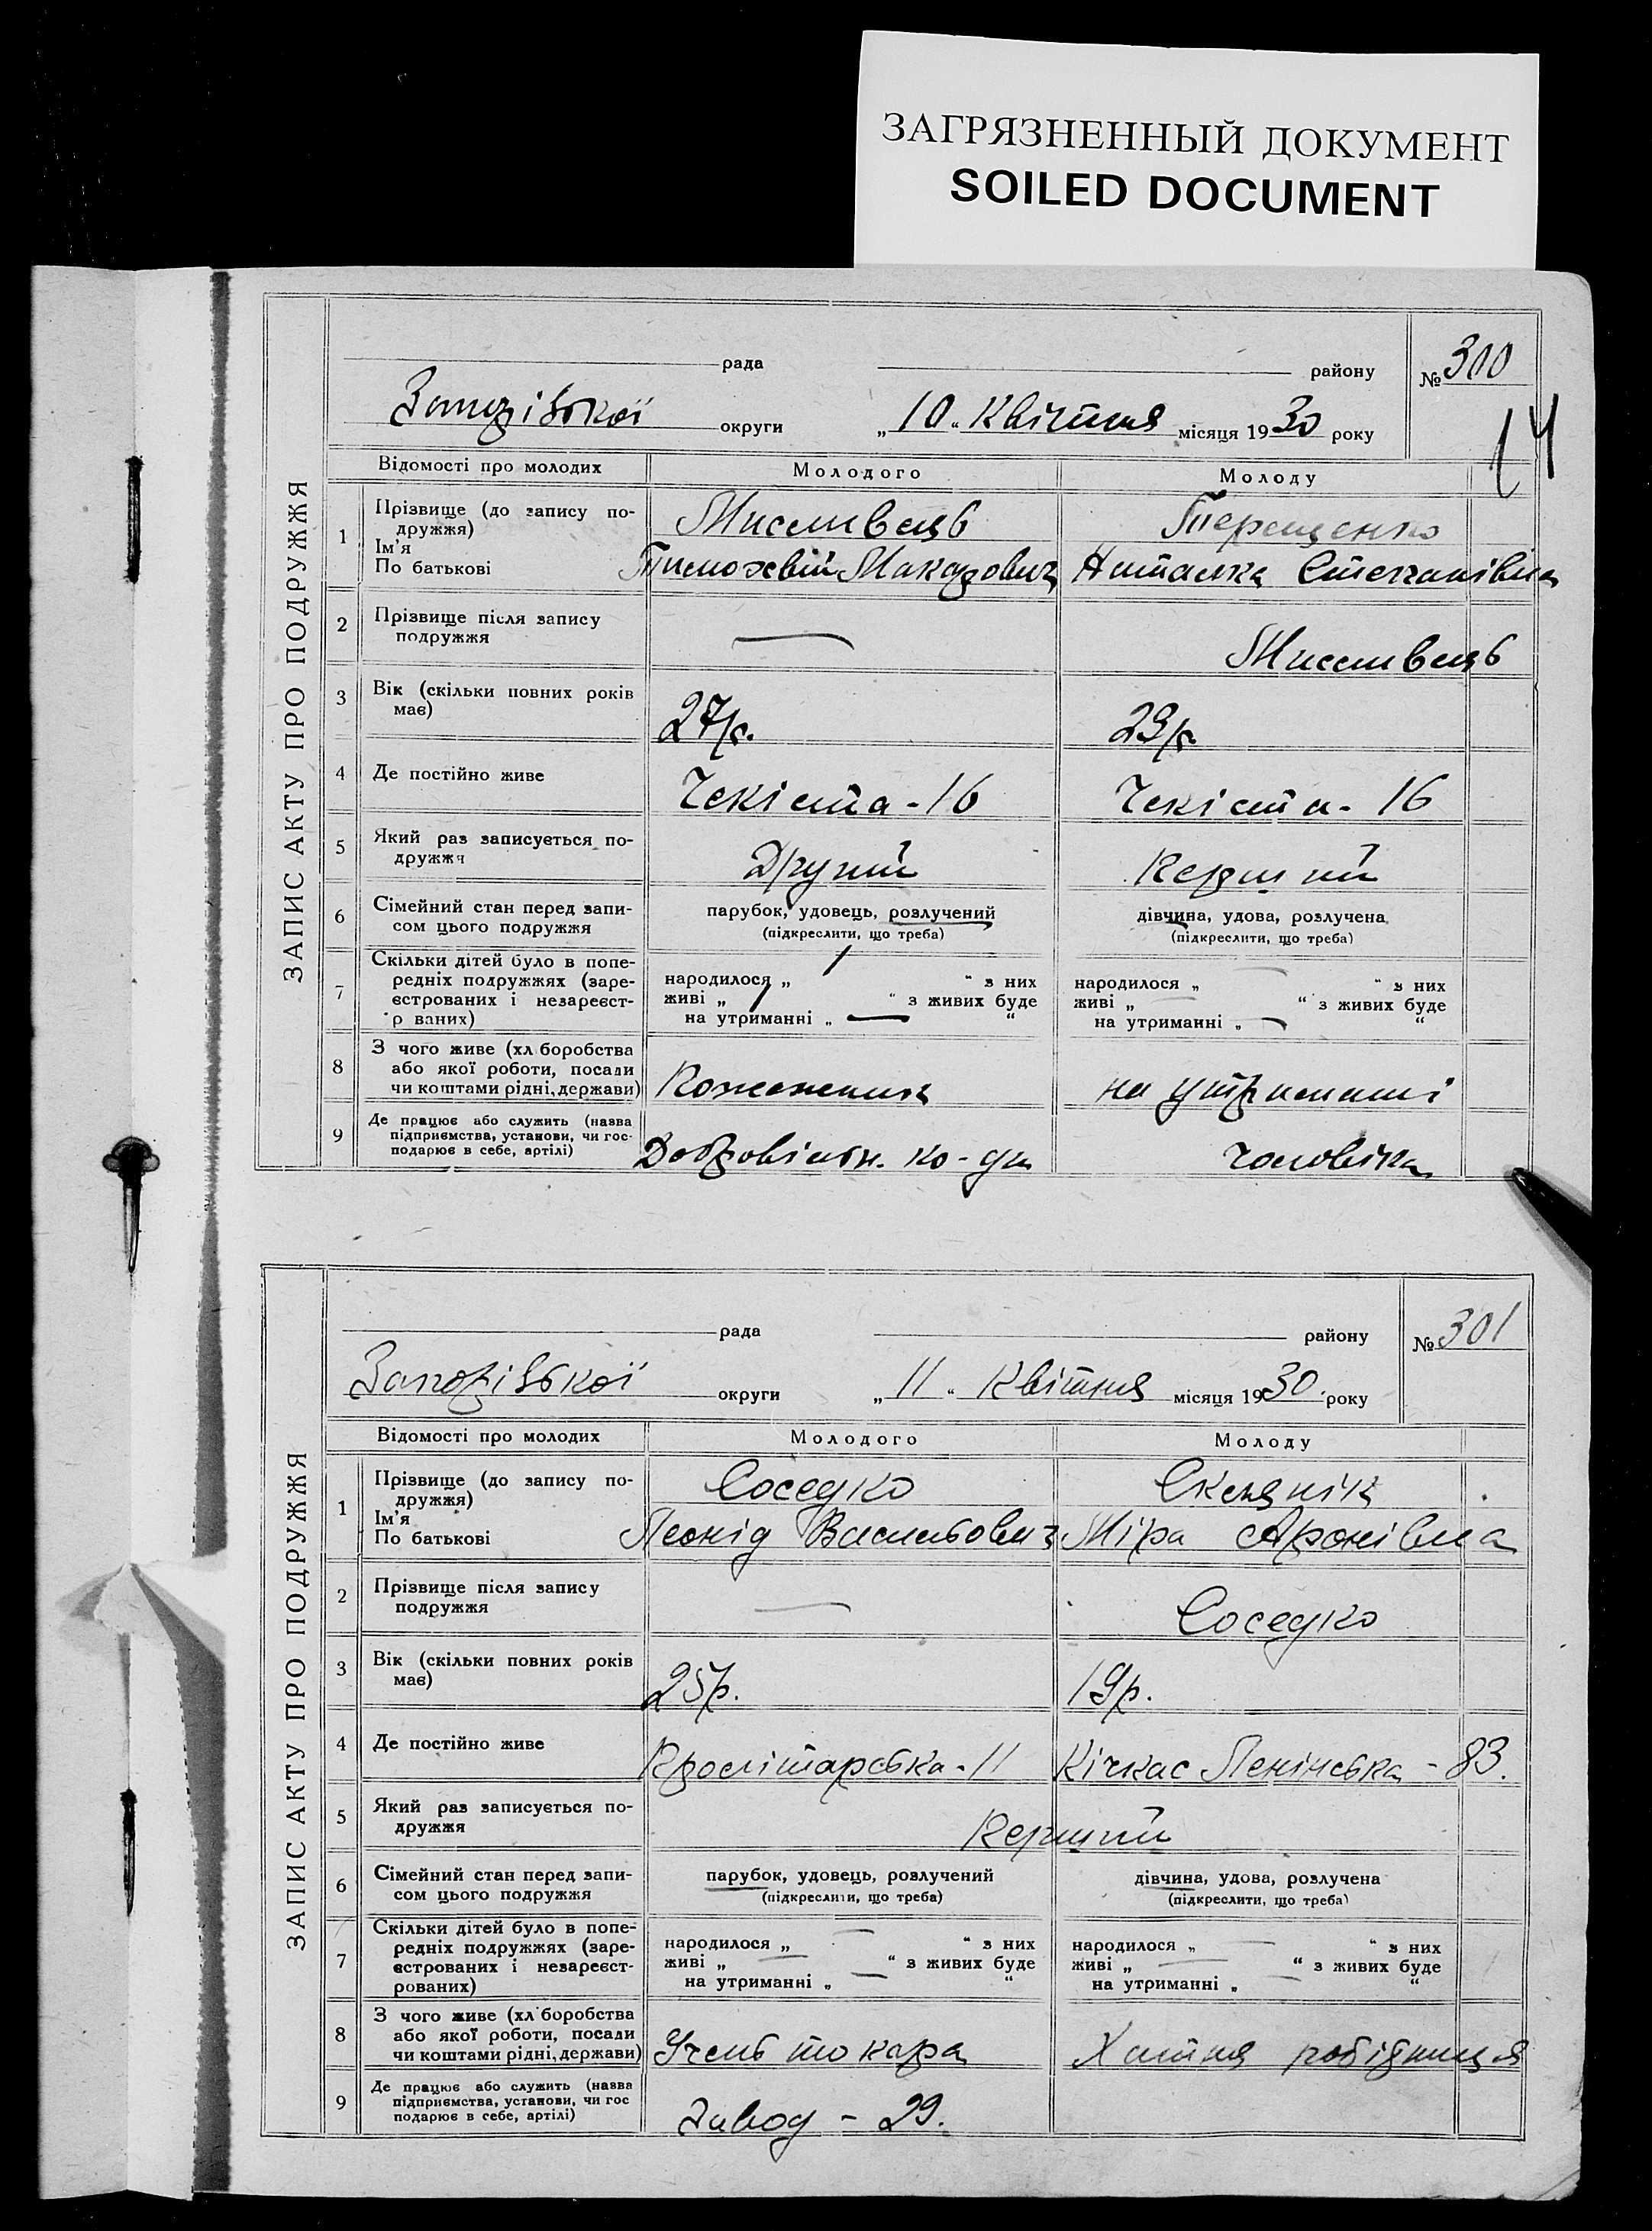 ЗАГРЯЗНЕННЫЙ ДОКУМЕНТ
SOILED DOCUMENT
ЗАПИС АКТУ ПРО ПОДРУЖЖЯ
рада району № 300
округи „10“ Квітня місяця 1930 року
14
Відомості про молодих Молодого Молоду
1 Прізвище (до запису по-
дружжя)
Ім’я
По батькові
Мисливець Терещенко
Тимохвій Макарович Наталка Степанівна
2 Прізвище після запису
подружжя
— Мисливець
3 Вік (скільки повних років
має)
27р. 23р.
4 Де постійно живе Чекіста - 16 Чекіста - 16
5 Який раз записується по-
дружжя
Другий Перший
6 Сімейний стан перед запи-
сом цього подружжя
парубок, удовець, розлучений дівчина, удова, розлучена
(підкреслити, що треба) (підкреслити, що треба)
7 Скільки дітей було в попе-
редніх подружжях (заре-
єстрованих і незареєст-
р ваних)
народилося „ 1 “ з них народилося „ — “ з них
живі „ 1 “ з живих буде живі „ “ з живих буде
на утриманні „ — “ на утриманні „ — “
8 З чого живе (хл боробства
або якої роботи, посади
чи коштами рідні, держави)
на утриманні
9 Де працює або служить (назва
підприємства, установи, чи гос-
подарює в себе, артілі)
Добровільн. ко-да чоловіка
ЗАПИС АКТУ ПРО ПОДРУЖЖЯ
рада району № 301
округи „11“ Квітня місяця 1930. року
Відомості про молодих Молодого Молоду
1 Прізвище (до запису по-
дружжя)
Ім’я
По батькові
Соседко Скляник
Леонід Васильович Міра Аронівна
2 Прізвище після запису
подружжя
— Соседко
3 Вік (скільки повних років
має)
25р. 19р.
4 Де постійно живе Пролітарська - 11 Кічкас Ленінська - 83.
5 Який раз записується по-
дружжя
Перший
6 Сімейний стан перед запи-
сом цього подружжя
парубок, удовець, розлучений дівчина, удова, розлучена
(підкреслити, що треба) (підкреслити, що треба)
7 Скільки дітей було в попе-
редніх подружжях (заре-
єстрованих і незареєст-
рованих)
народилося „ — “ з них народилося „ — “ з них
живі „ — “ з живих буде живі „ — “ з живих буде
на утриманні „ — “ на утриманні „ “
8 З чого живе (хл боробства
або якої роботи, посади
чи коштами рідні, держави)
Учень токаря Хатня робітниця
9 Де працює або служить (назва
підприємства, установи, чи гос
подарює в себе, артілі)
Завод - 29.